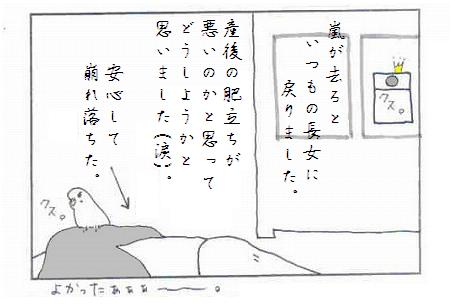 嵐が去ると
いつもの長女に
戻りました。
クス。
産後の肥立ちが
悪いのかと思って
どうしようかと
思いました(涙)。
安心して
崩れ落ちた。
クス。
よかったぁぁぁ〜〜。